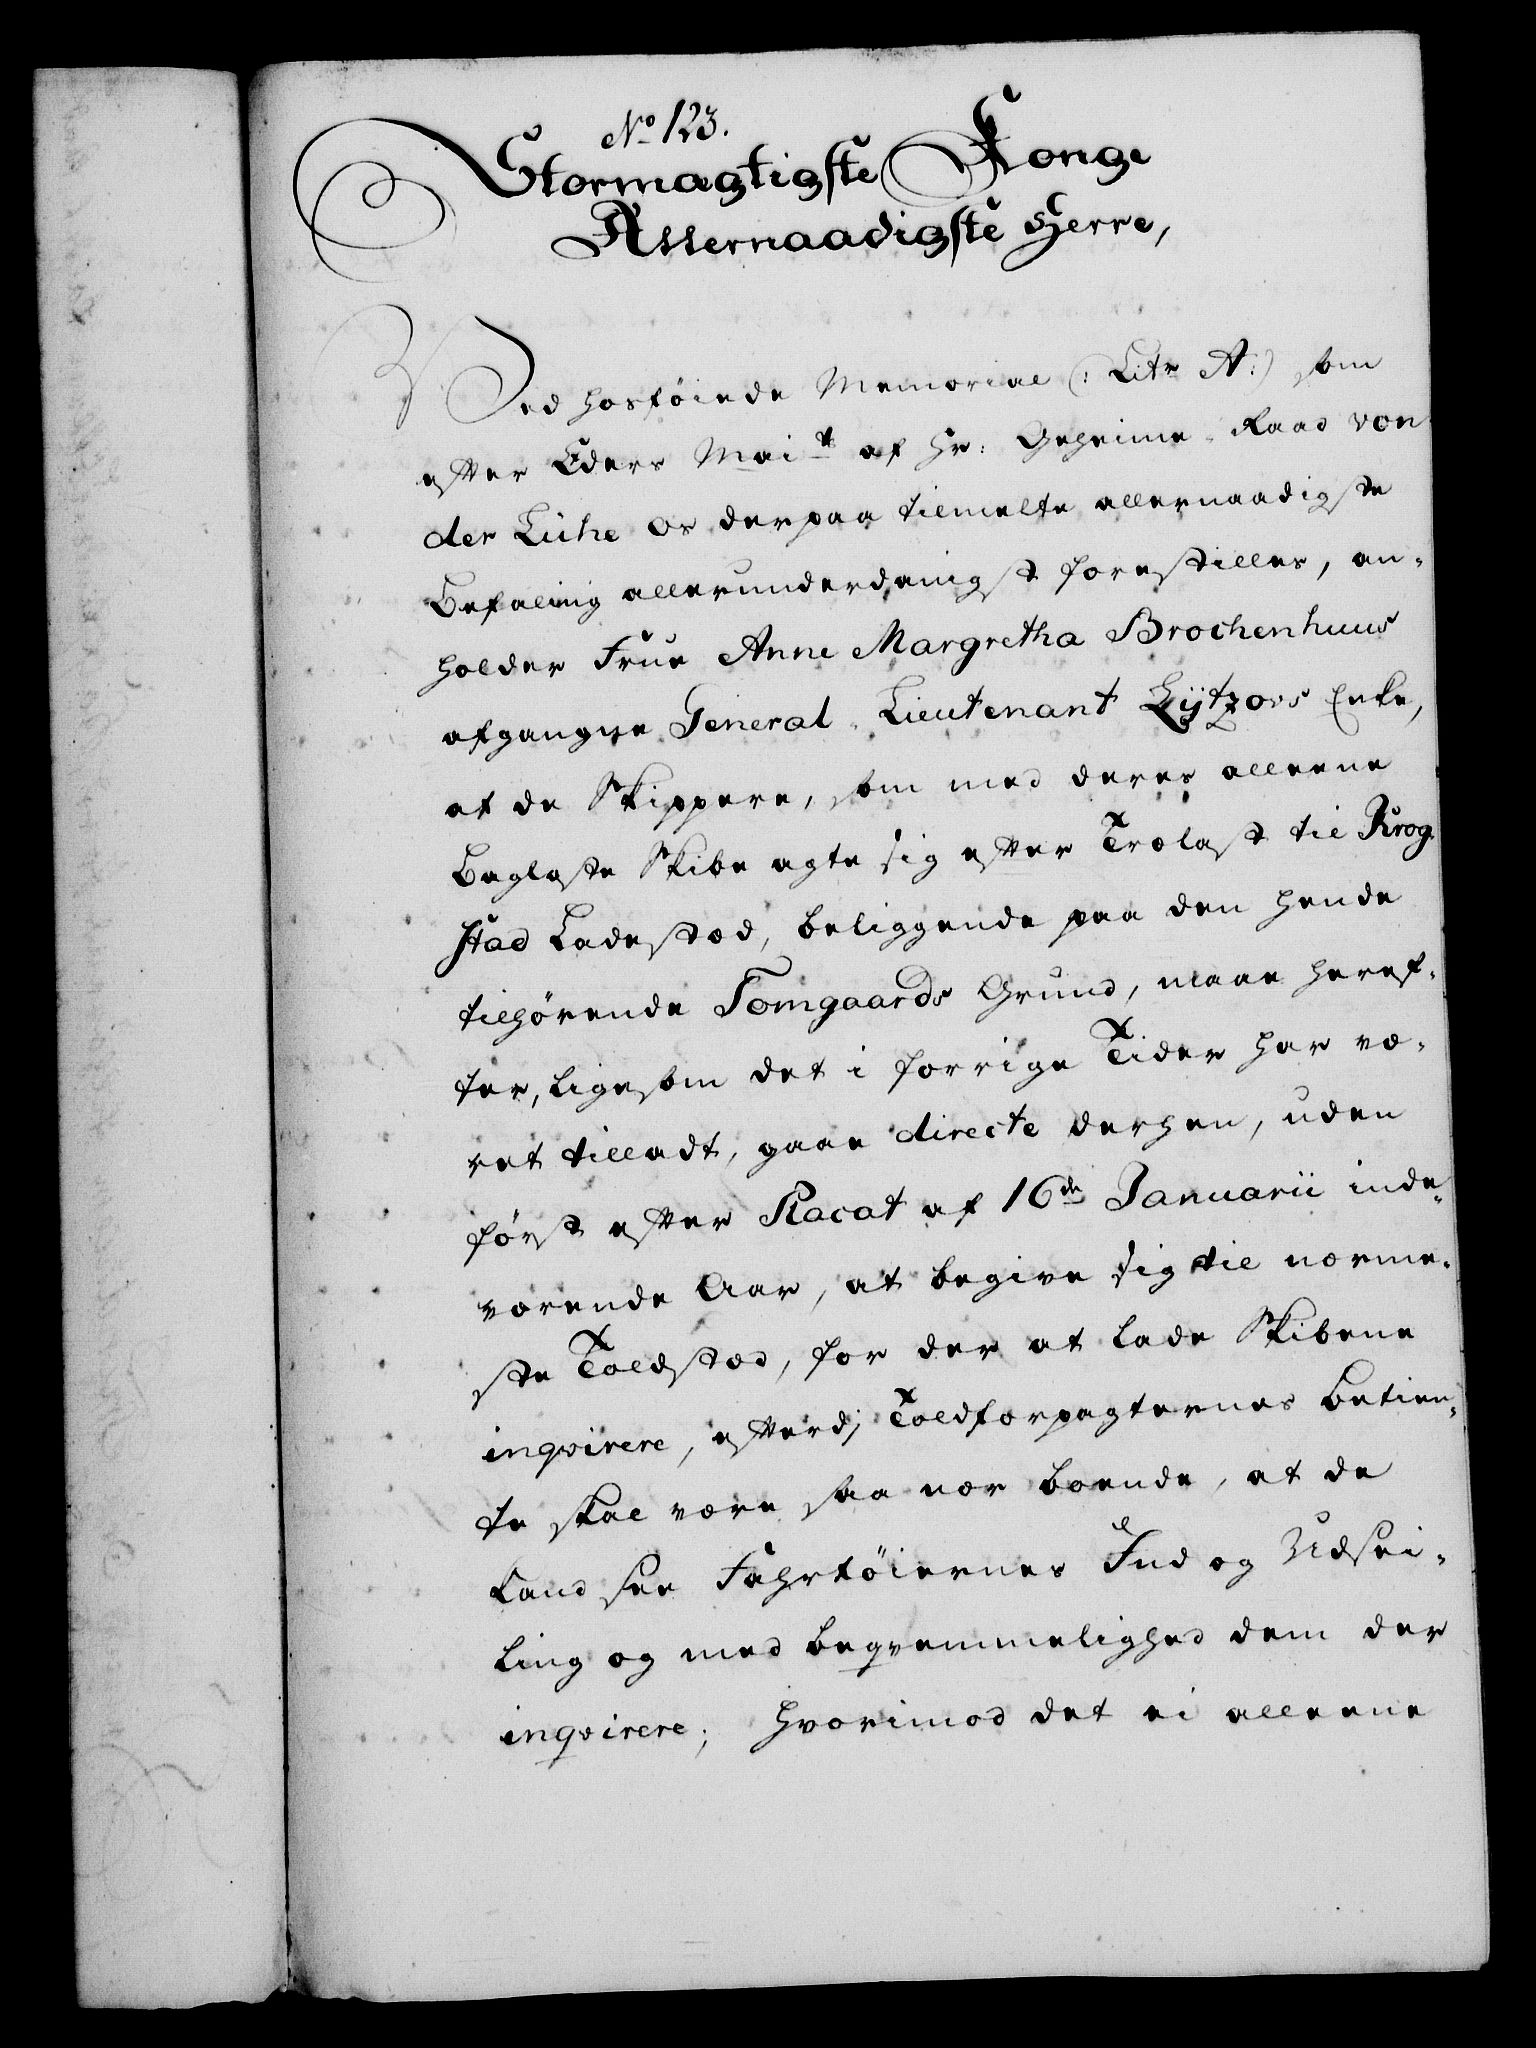 No 123.
Stormægtigste Konge
Allernaadigste Herre,
Ved hosföiede Memorial (: Litr A:) som
efter Eders Mait af Hr: Geheime-Raad von
der Lühe os derpaa tilmelte allernaadigste
Befaling allerunderdanigst forestilles, an-
holder Frue Anne Margretha Brochenhuus
afgangne General-Lieutenant Lÿtzovs Enke,
at de Skippere, som med deres alleene
Baglaste Skibe agte sig efter Trælast til Krog-
stad Ladestæd, beliggende paa den hende
tilhørende Tomgaards Grund, maae heref-
ter, ligesom det i forrige Tider har væ-
ret tilladt, gaae directe derhen, uden
først efter Placat af 16de Januarii inde-
værende Aar, at begive sig til nærme-
ste Toldstæd, for der at lade Skibene
inqvirere, efterdj Toldforpagternes Betien-
te skal være saa nær boende, at de
kand see Fahrtöiernes Ind og Udsei-
ling og med beqvemmelighed dem der
inqvirere; hvorimod det ei alleene